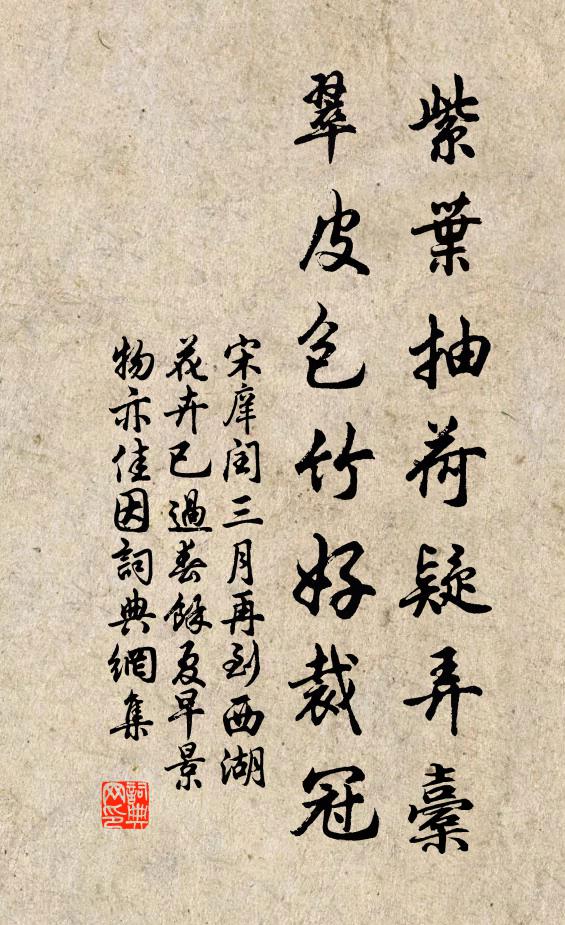 紫葉抽荷疑弄橐
翠皮包竹好裁冠
宋庠閏三月再到西湖
花卉已過春餘夏早景
物亦佳因詞典網集
詞典
网印